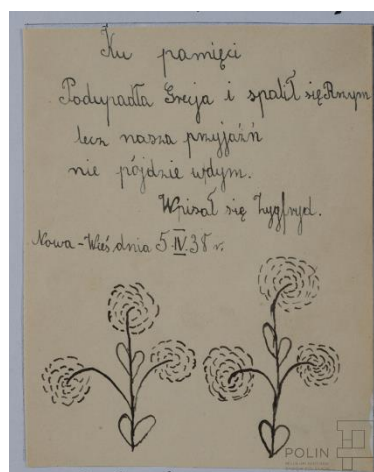 Ku pamięci
Podupadła Grecja i spalił się Rzym
lecz nasza przyjaźń
nie pójdzie w dym.
Wpisał się Zygfryd.
Nowa-Wieś dnia 5.IV.38 r.
POLIN